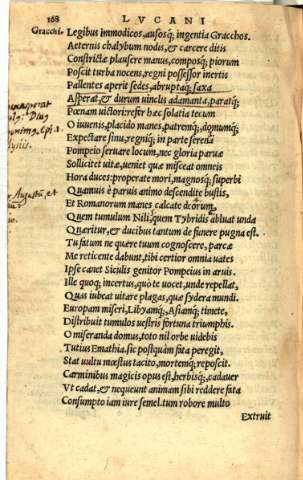 168 LVCANI
Gracchi. Legibus immodicos, ausosq; ingentia Gracchos.
Aeternis chalybum nodis, & carcere ditis
Constrictæ plausere manus, camposq; piorum
Poscit turba nocens, regni possessor inertis
Pallentes aperit sedes, abruptaq; saxa
Asperat, & durum uinclis adamanta, paratq;
Pœnam uictori: refer hæc solatia tecum
O iuuenis, placido manes, patremq;, domumq;
Expectare sinu, regniq; in parte serena
Pompeio seruare locum, nec gloria paruæ
Sollicitet uitæ, ueniet quæ misceat omneis
Hora duces: properate mori, magnosq; superbi
Quamuis è paruis animo descendite bustis,
Et Romanorum manes calcate deorum,
Quem tumulum Nili, quem Tybridis abluat unda
Quæritur, & ducibus tantum de funere pugna est.
Tu fatum ne quære tuum cognoscere, parcæ
Me reticente dabunt, tibi certior omnia uates
Ipse canet Siculis genitor Pompeius in aruis.
Ille quoq; incertus, quò te uocet, unde repellat,
Quas iubeat uitare plagas, quæ sydera mundi.
Europam miseri, Libyamq;, Asiamq; timete,
Distribuit tumulos uestris fortuna triumphis.
O miseranda domus, toto nil orbe uidebis
Tutius Emathia. sic postquàm fata peregit,
Stat uultu mœstus tacito, mortemq; reposcit.
Carminibus magicis opus est, herbisq;, cadauer
Vt cadat, & nequeunt animam sibi reddere fata
Consumpto iam iure semel. tum robore multo
Extruit